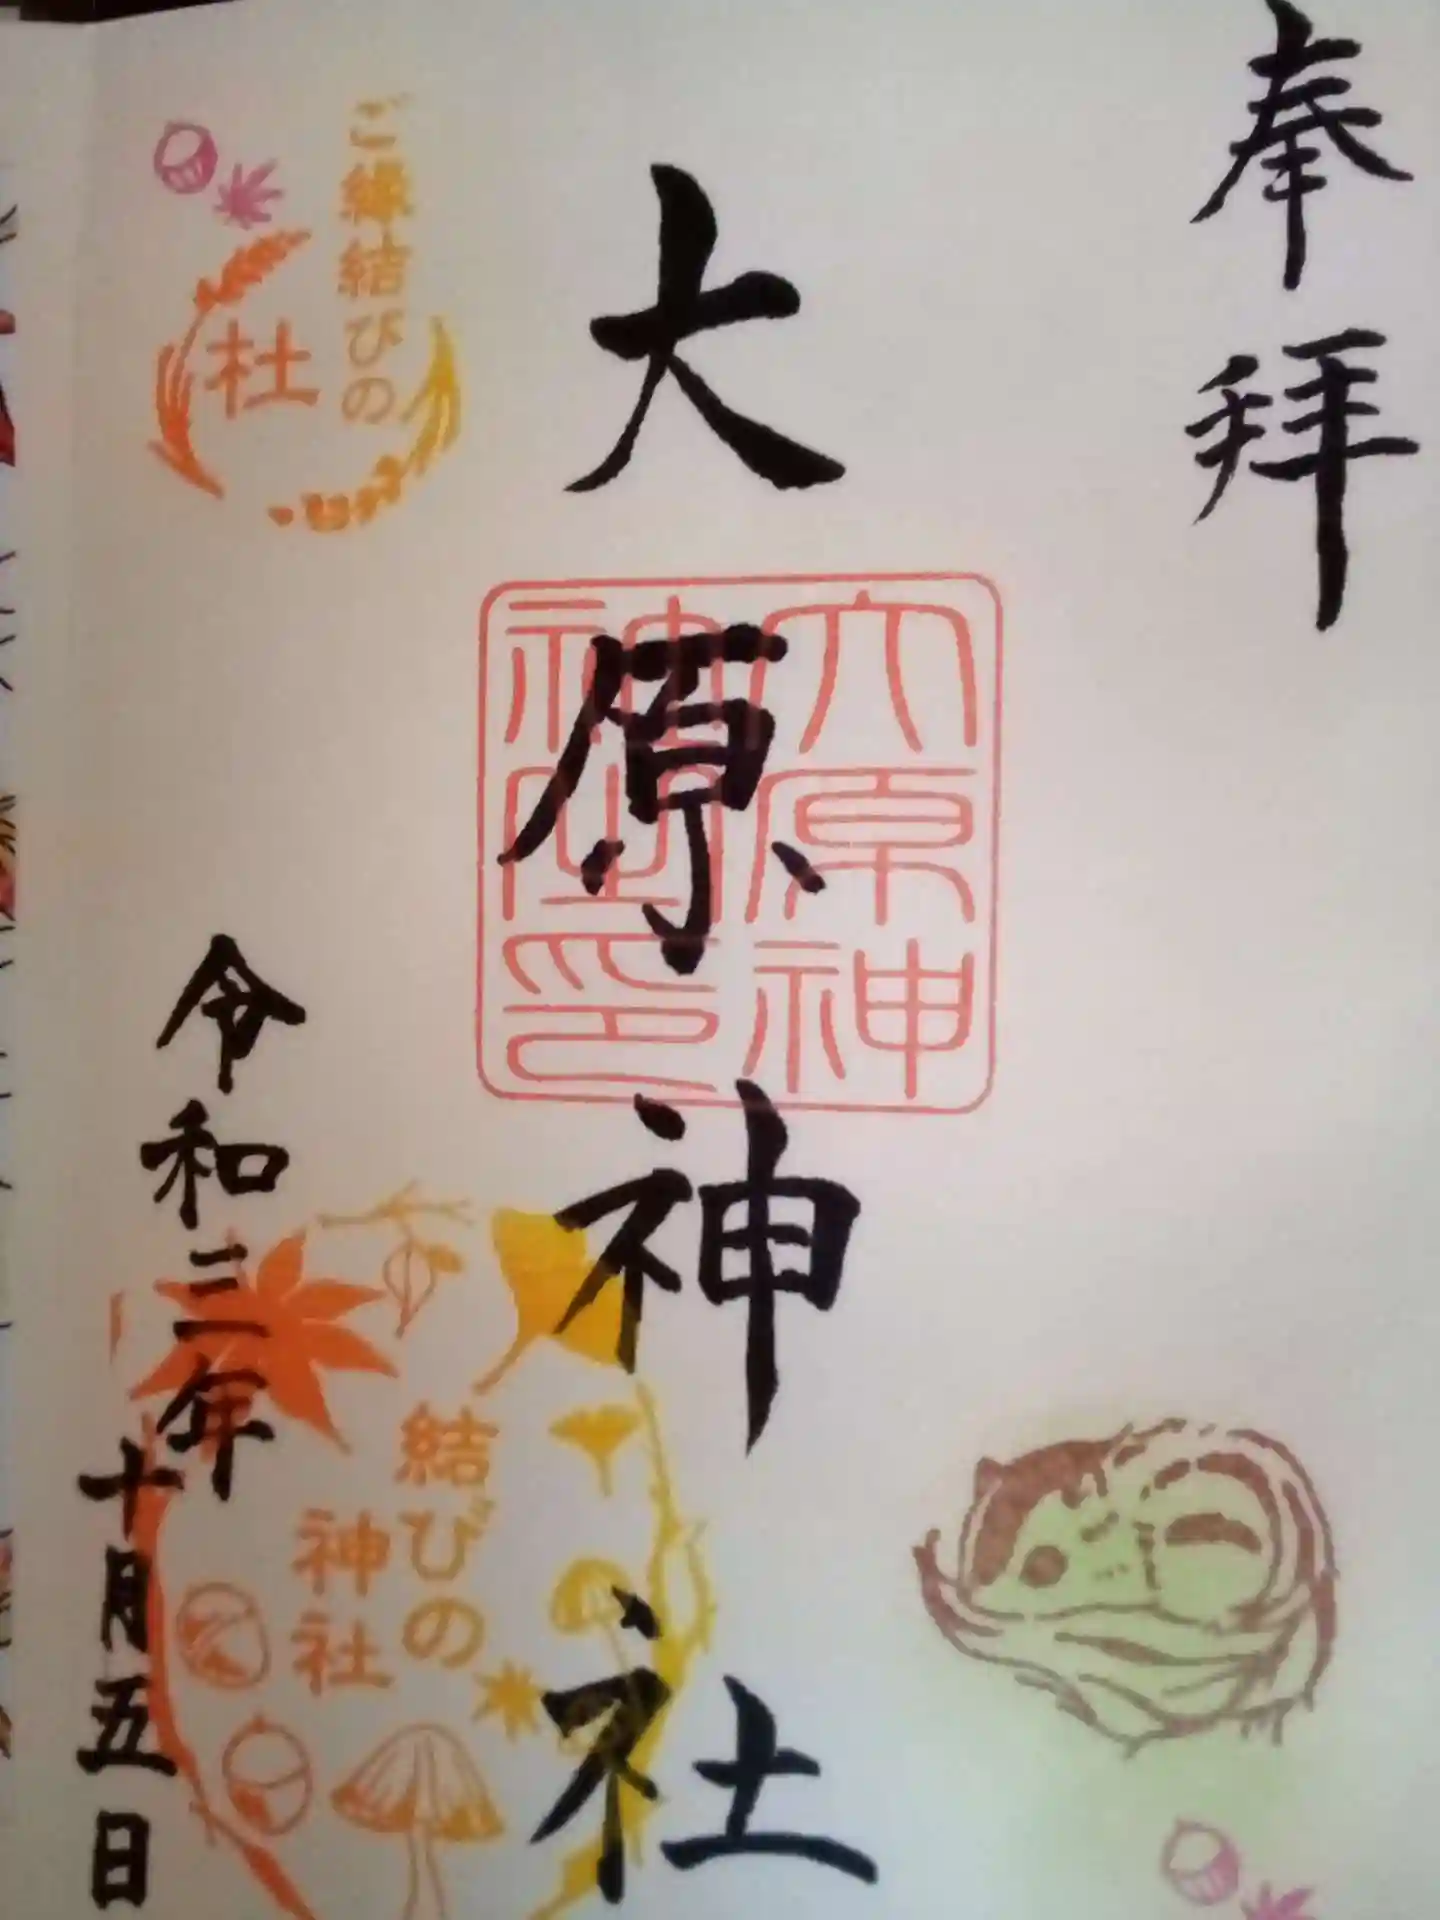 奉拝
大原神社
大原神
神社印
令和三年
十月五日
ご縁結びの
杜
結びの
神社